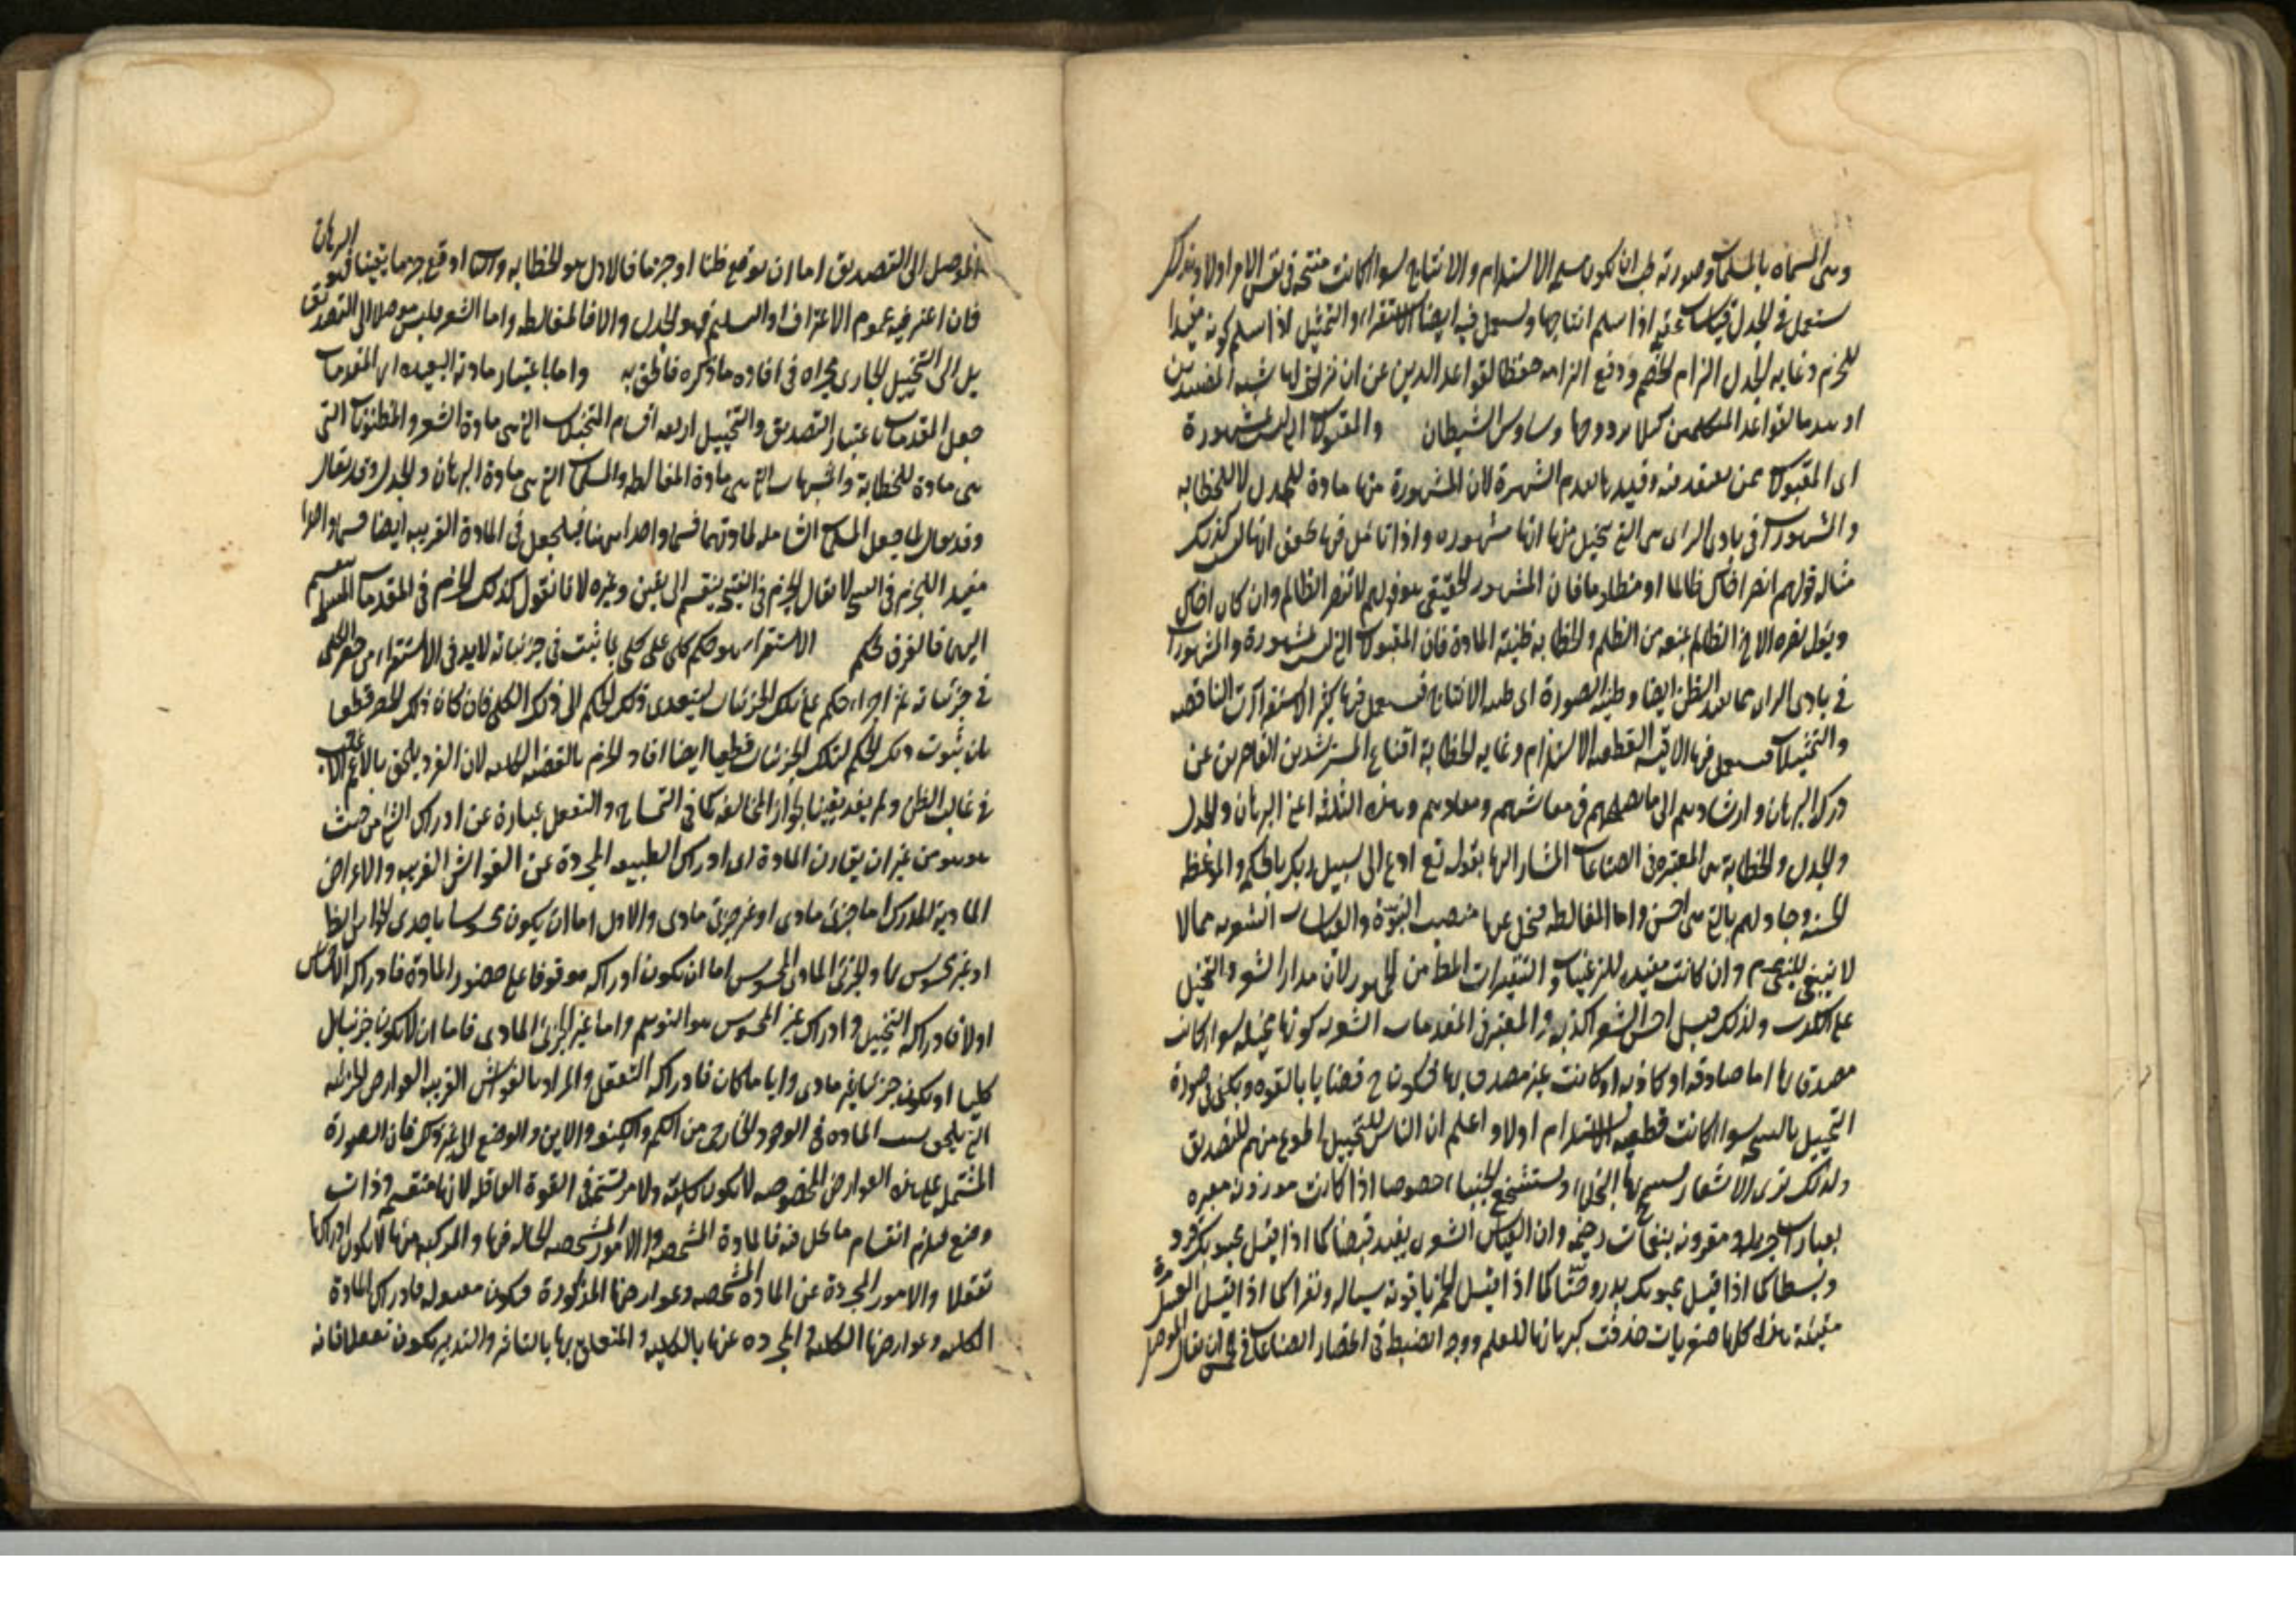 وهى المسماه بالمسلمات وصورته يجب ان يكون مسلم الاستلزام والانتاج سواء كانت منتجة فى نفس الامر اولا ولذلك
يستعمل فى الجدل قياسات عقيمة اذا سلم انتاجها ويستعمل فيه ايضا الاستقراء والتمثيل اذا سلم كونه مفيدا
للجزم وغاية الجدل الزام الخصم ودفع الزامه حفظا لقواعد الدين عن ان شبه المفسدين
لقواعد المتكلمين كيلا وساوس الشيطان والمقبولات التى ليست مشهورة
اى المقبولات ممن يعتقد فيه وقيد بعدم الشهرة لان المشهورة منها مادة للجدل لا للخطابه
والمشهورات فى بادى الراى هى التى يخيل منها انها مشهوره واذا تامل فيها تحقق انها ليس كذلك
مثاله قولهم انصر اخاك ظالما او مظلوما فان المشهور الحقيقى هو قولهم لا تنصر الظالم وان كان اخاك
نصره الاخ الظالم بمنعه من الظلم والخطابه ظنية المادة فان المقبولات التى ليست مشهورة والمشهورات
فى بادى الراى مما يفيد الظن ايضا وظنية الصورة اى ظنية الانتاج فيستعمل فيها كثيرا الاستقراآت الناقصه
والتمثيلات فيستعمل فيها الاقيسة القطعيه الاستلزام وغاية الخطابة اقناع المسترشدين القاصرين عن
درك البرهان وارشادهم الى ما يهمهم فى معاشهم ومعادهم وهذه الثلثة اعنى البرهان والجدل
والجدل والخطابة هى المعتبرة فى الصناعات المشار اليها بقوله تع ادع الى سبيل ربك بالحكمة والموعظة
الحسنه وجادلهم بالتى هى احسن واما المغالطه عنها منصب النبوة والقياسات الشعريه مما لا
لا ينبغى للنبى عم وان كانت مفيده للترغيبات والتنفيرات المطلوبة من الجمهور لان مدار الشعر والتخيل
على الكذب ولذلك قيل احسن الشعر اكذبه والمعتبر فى المقدمات الشعريه كونها مخيله سواء كانت
مصدقا بها اما صادقه او كاذبه او كانت غير مصدق بها فتكون ح قضايا بالقوه ويكفى فى صورة
التخييل بالنتيجة سواء كانت قطعيه الاستلزام اولا واعلم ان الناس للتخييل اطوع منهم للتصديق
ولذلك ترى الاشعار بها البخلاء ويستشجع الجبناء خصوصا اذا كانت موزونه معبره
بعبارات جزيله ومقرونه بنغمات رخيمه وان القياس الشعرى يفيد قبضا كما اذا قيل محبوبك قرد
وبسطا كما اذا قيل محبوبك بدر وحثا كما اذا قيل الخمر ياقوته سياله ونفرا كما اذا قيل العسل مرة
مقيئة وهذه كلها صغريات حذفت كبرياتها للعلم ووجه الضبط فى انحصار الصناعات فى خمس ان يقال الموصل
الموصل الى التصديق اما ان يوقع ظنا او جزما فالاول هو الخطابه والثانى ان اوقع جزما يقينيا فهو البرهان
فان اعتبر فيه عموم الاعتراف او التسليم فهو الجدل والا فالمغالطه واما الشعر فليس موصلا الى التصديق
بل الى التخييل الجارى مجراه فى افاده ما ذكره فالحق به واما باعتبار مادته البعيده اى المقدمات
جعل المقدمات باعتبار التصديق والتخييل اربعه اقسام المتخيلات التى هى مادة الشعر والمظنونات التى
هى مادة للخطابة والمشبهات التى هى مادة المغالطه والمسلمات التى هى مادة البرهان والجدل وقد يقال
وقد يقال لما جعل المسلمات الشامله لمادتيهما قسما واحدا هنا فليجعل فى المادة القريبه ايضا قسما واحدا
مفيد الجزم فى النتيجة لا يقال الجزم فى النتيجة ينقسم الى يقين وغيره لانا نقول كذلك الجزم فى المقدمات المسلمة ينقسم
اليهما فالفرق تحكم الاستقراء هو حكم على كلى بما ثبت فى جزئياته لابد فى الاستقراء من حصر الكلى
فى جزئياته ثم اجراء حكم على تلك الجزئيات ليتعدى ذلك الحكم الى ذلك الكلى فان كان ذلك الحصر قطعيا
بان ثبوت ذلك الحكم لتلك الجزئيات قطعيا ايضا افاد الجزم بالقضيه الكليه لان الفرد يلحق بالاعم الاغلب
فى غالب الظن ولم يفد يقينا لجواز المخالفة كما فى التمساح والتعقل عبارة عن ادراك الشئ من حيث
هو هو من غير ان يقارن المادة اى ادراك الطبيعه المجردة عن الغواشى الغريبه والاعراض
الماديه المدرك اما جزئى مادى او غير جزئى مادى والاول اما ان يكون محسوسا باحدى الحواس الظا
او غير محسوس بها والجزئى المادى المحسوس اما ان يكون ادراكه موقوفا على حضور المادة فادراكه الاحساس
اولا فادراكه التخييل وادراك غير المحسوس هو التوهم واما غير الجزئى المادى فاما ان لا يكون جزئيا بل
كليا او يكون جزئيا غير مادى وايا ما كان فادراكه التعقل والمراد بالغواشى الغريبه العوارض الجزئيه
التى يلحق بسبب الماده فى الوجود الخارجى من الكم والكيف والاين والوضع الى غير ذلك فان الصورة
المشتمل على هذه العوارض المخصوصه لا يكون كلية ولا مرتسمة فى القوة العاقله لانها منقسمه وذات
وضع فيلزم انقسام ما يحل فيه فالمادة المشخصه والامور المشخصه الحالة فيها والمركبه منها لا يكون ادراكها
تعقلا والامور المجردة عن المادة المشخصه وعوارضها المذكورة فيكون معقوله فادراك المادة
الكليه وعوارضها الكليه والمجرده عنها بالكليه والمتعلق بها بالتاثير والتدبير يكون تعقلا فانه